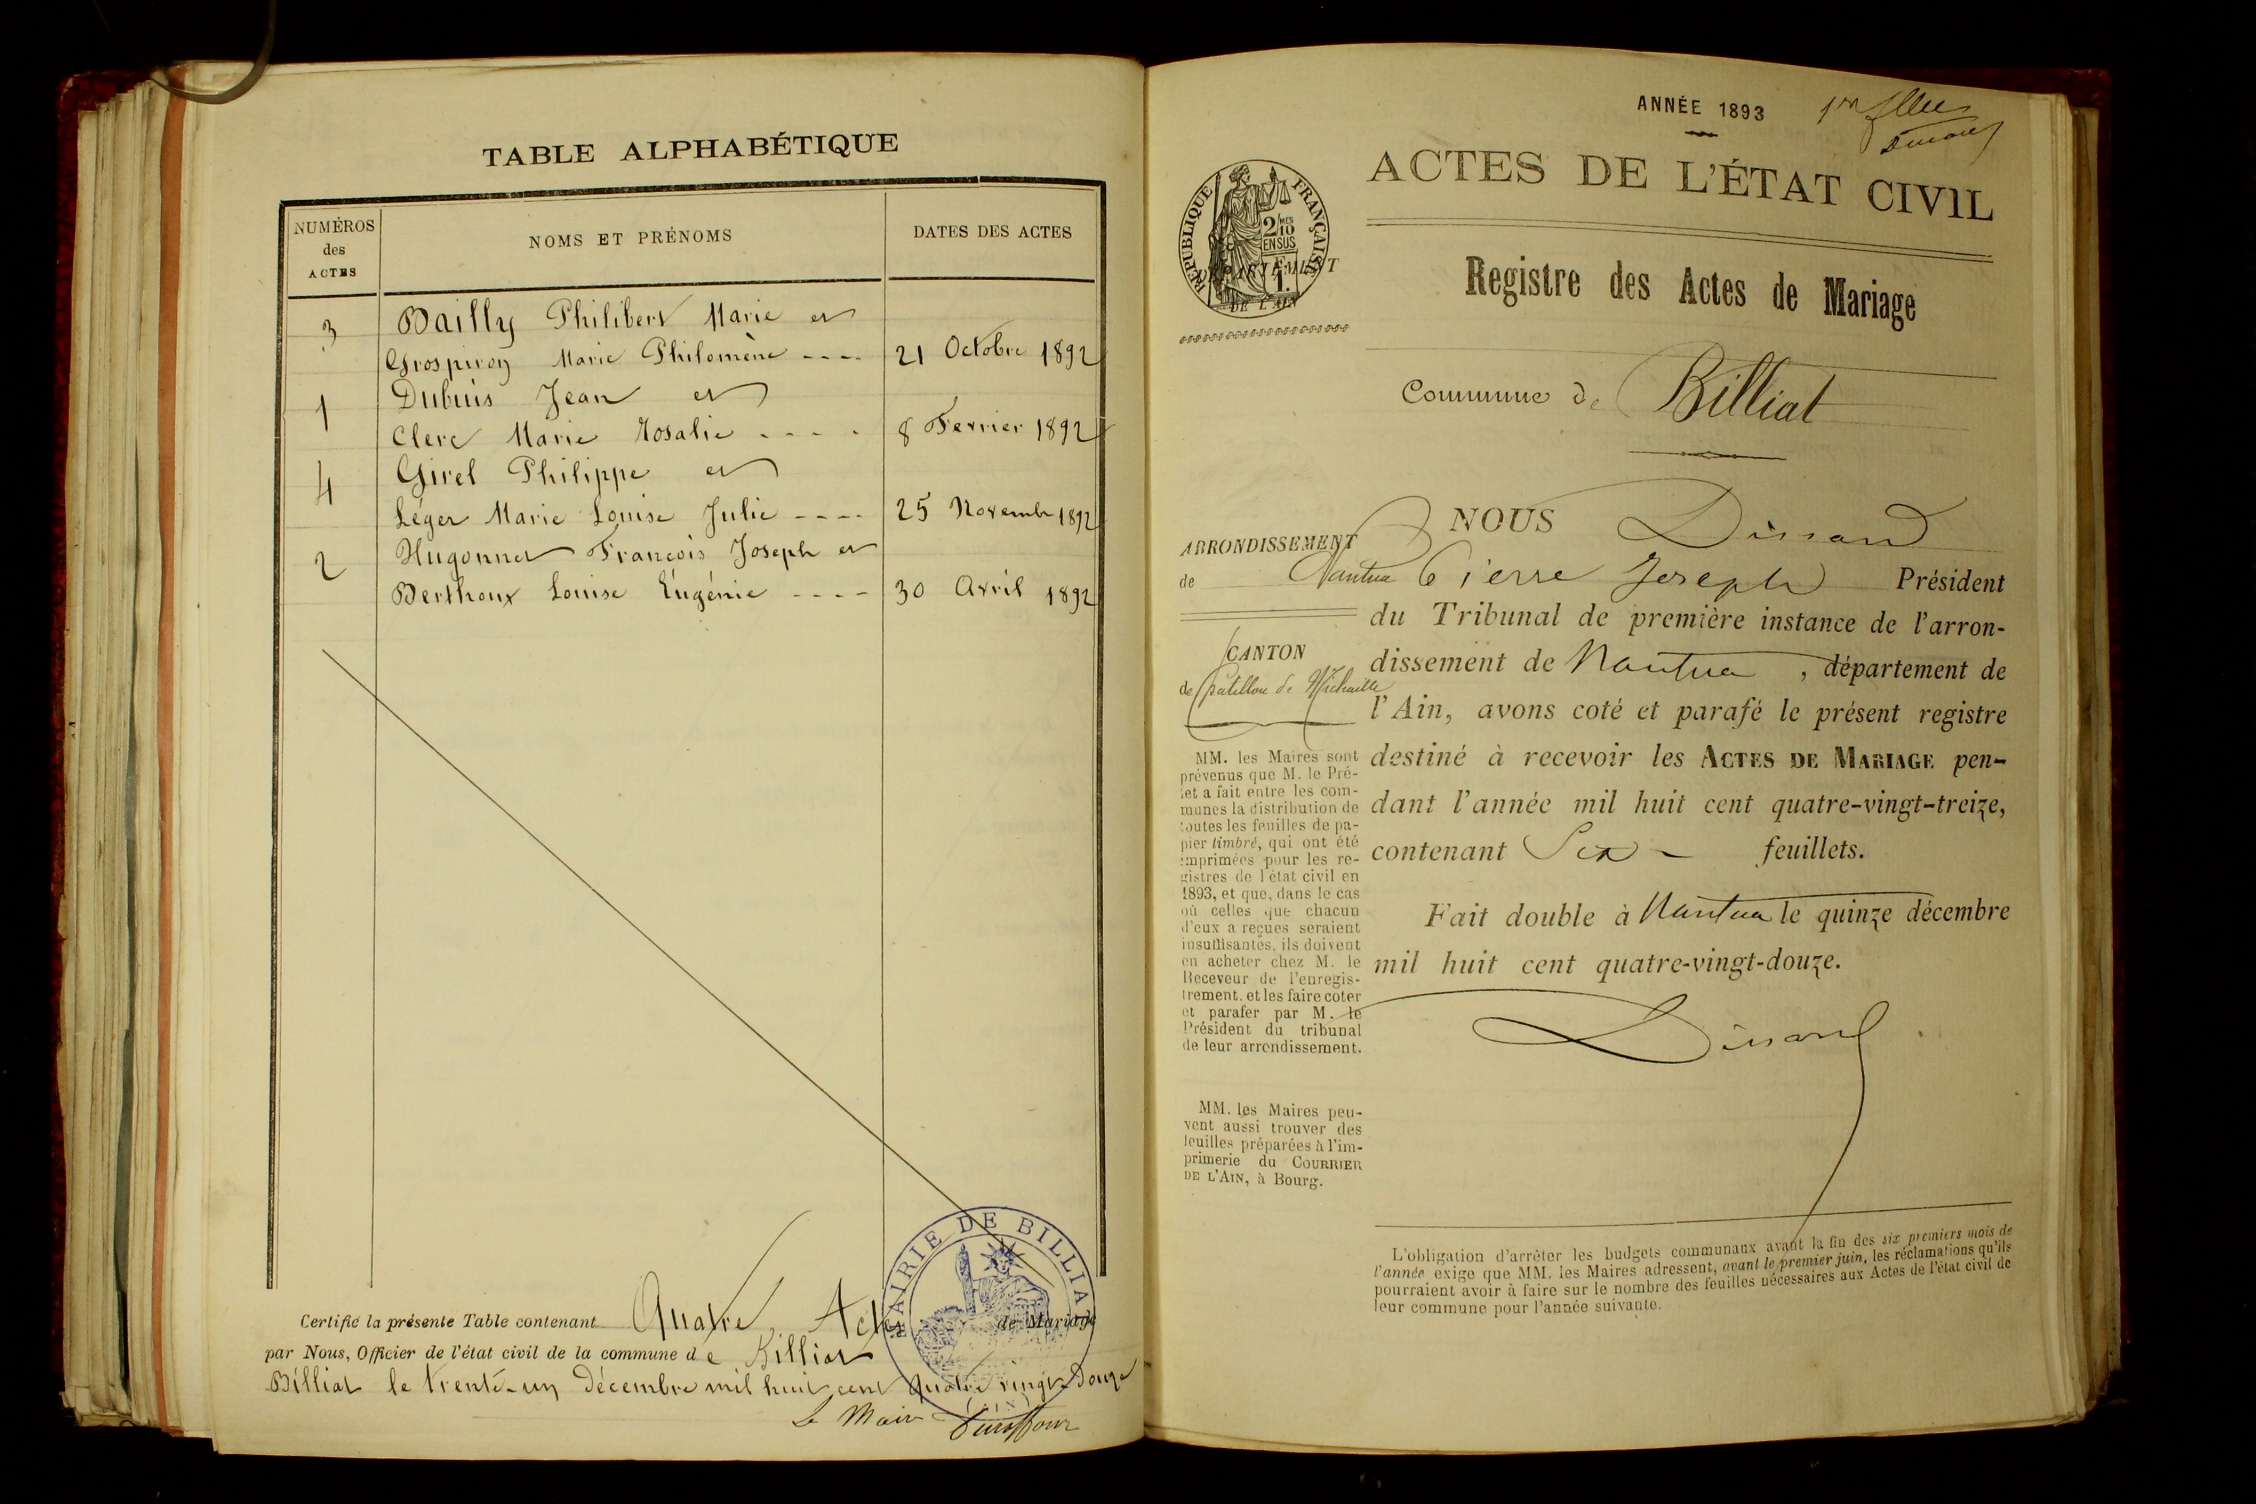 TABLE ALPHABÉTIQUE
NUMÉROS
des
ACTES
NOMS ET PRÉNOMS
DATES DES ACTES
3
Bailly Philibert Marie et
Grospiron Marie Philomène ---- 21 Octobre 1892
1
Dubuis Jean et
Clerc Marie Rosalie - - - - 8 Fevrier 1892
4
Girel Philippe et
Léger Marie Louise Julie ---- 25 Novembr 1892
2
Hugonnet François Joseph et
Berthoux Louise Eugénie ---- 30 Avril 1892
Certifié la présente Table contenant Quatre Act de Mariage
par Nous, Officier de l'état civil de la commune de Billiat
Billiat le trente-un Décembre mil huit cent quatre vingt-Douze
Le Maire
MAIRIE DE BILLIAT
(AIN)
ANNÉE 1893
ACTES DE L'ÉTAT CIVIL
RÉPUBLIQUE FRANÇAISE
2/10
MES
EN SUS
1.
DÉPARTEMENT
DE L'AIN
Registre des Actes de Mariage
Commune de Billiat
ARRONDISSEMENT
de Nantua
CANTON
de Chatillon de Michaille
MM. les Maires sont
prévenus que M. le Pré-
fet a fait entre les com-
munes la distribution de
toutes les feuilles de pa-
pier timbré, qui ont été
imprimées pour les re-
gistres de l'état civil en
1893, et que, dans le cas
où celles que chacun
d'eux a reçues seraient
insuffisantes, ils doivent
en acheter chez M. le
Receveur de l'enregis-
trement. et les faire coter
et parafer par M. le
Président du tribunal
de leur arrondissement.
MM. les Maires peu-
vent aussi trouver des
feuilles préparées à l'im-
primerie du COURRIER
DE L'AIN, à Bourg.
NOUS
Pierre Joseph Président
du Tribunal de première instance de l'arron-
dissement de Nantua, département de
l'Ain, avons coté et parafé le présent registre
destiné à recevoir les ACTES DE MARIAGE pen-
dant l'année mil huit cent quatre-vingt-treize,
contenant Six - feuillets.
Fait double à Nantua le quinze décembre
mil huit cent quatre-vingt-douze.
L'obligation d'arrêter les budgets communaux avant la fin des six premiers mois de
l'année exige que MM. les Maires adressent, avant le premier juin, les réclamations qu'ils
pourraient avoir à faire sur le nombre des feuilles nécessaires aux Actes de l'état civil de
leur commune pour l'année suivante.